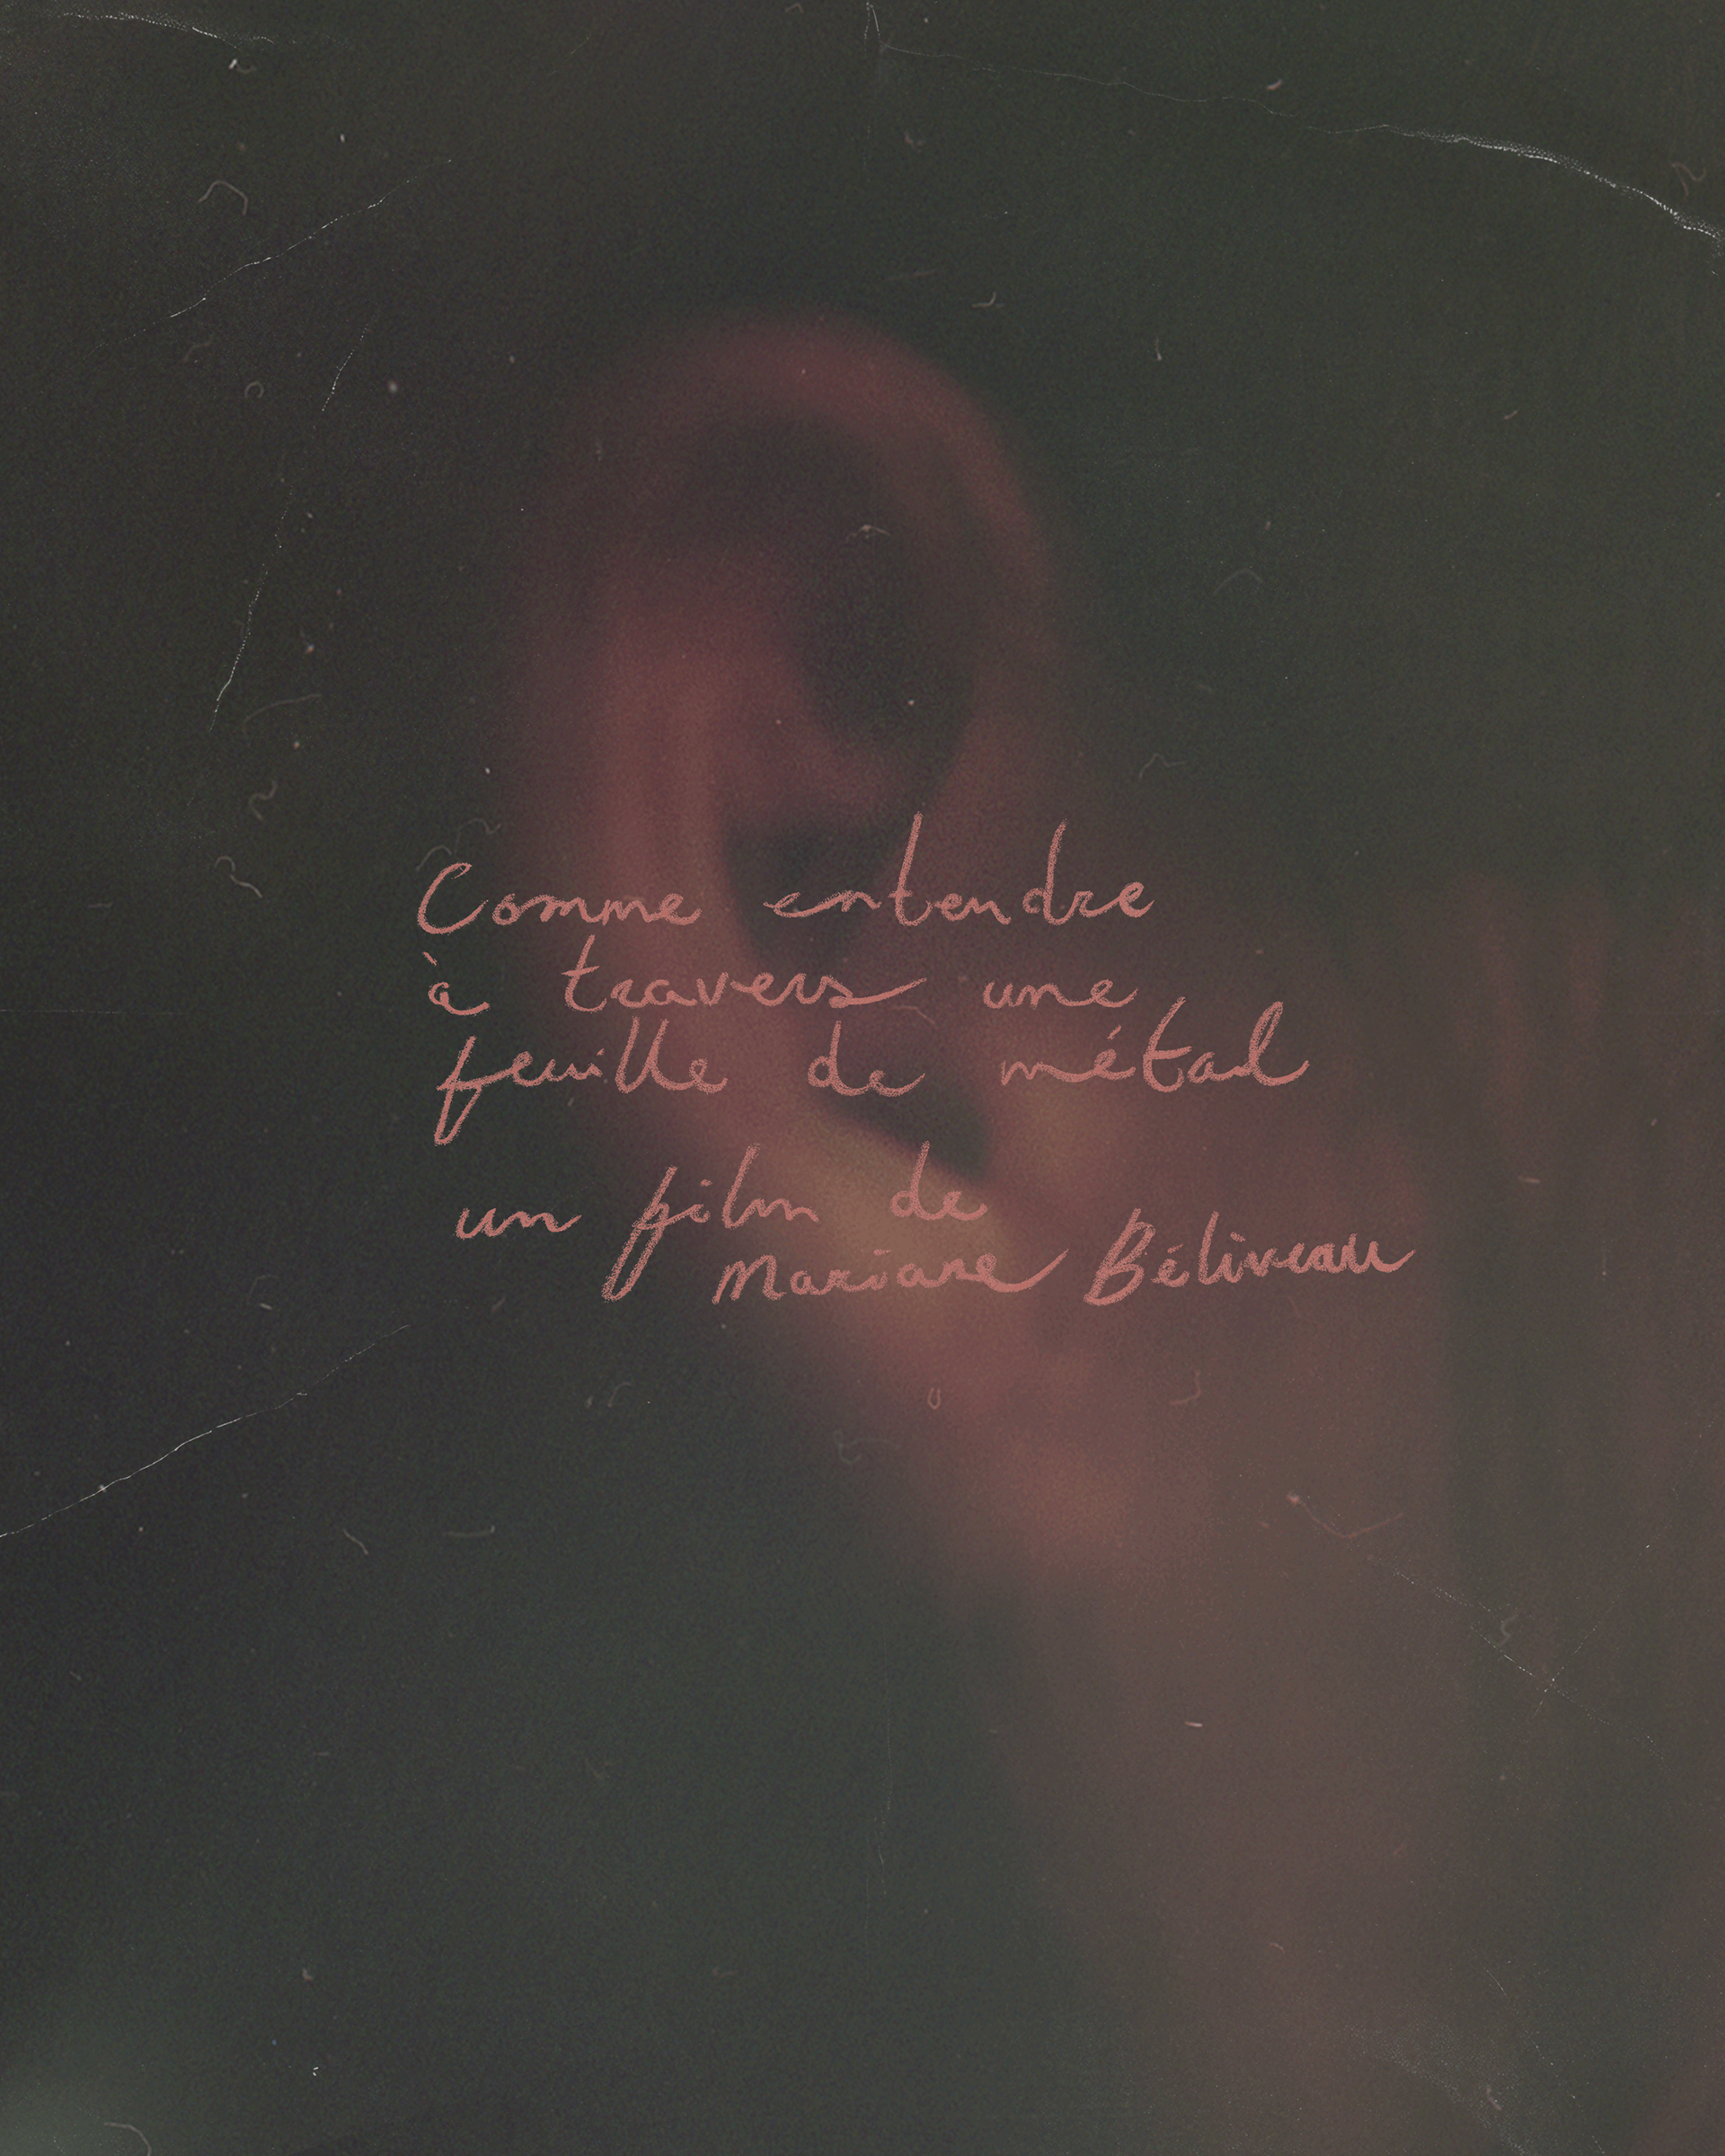 Comme entendre
à travers une
feuille de métal
un film de
Mariane Béliveau